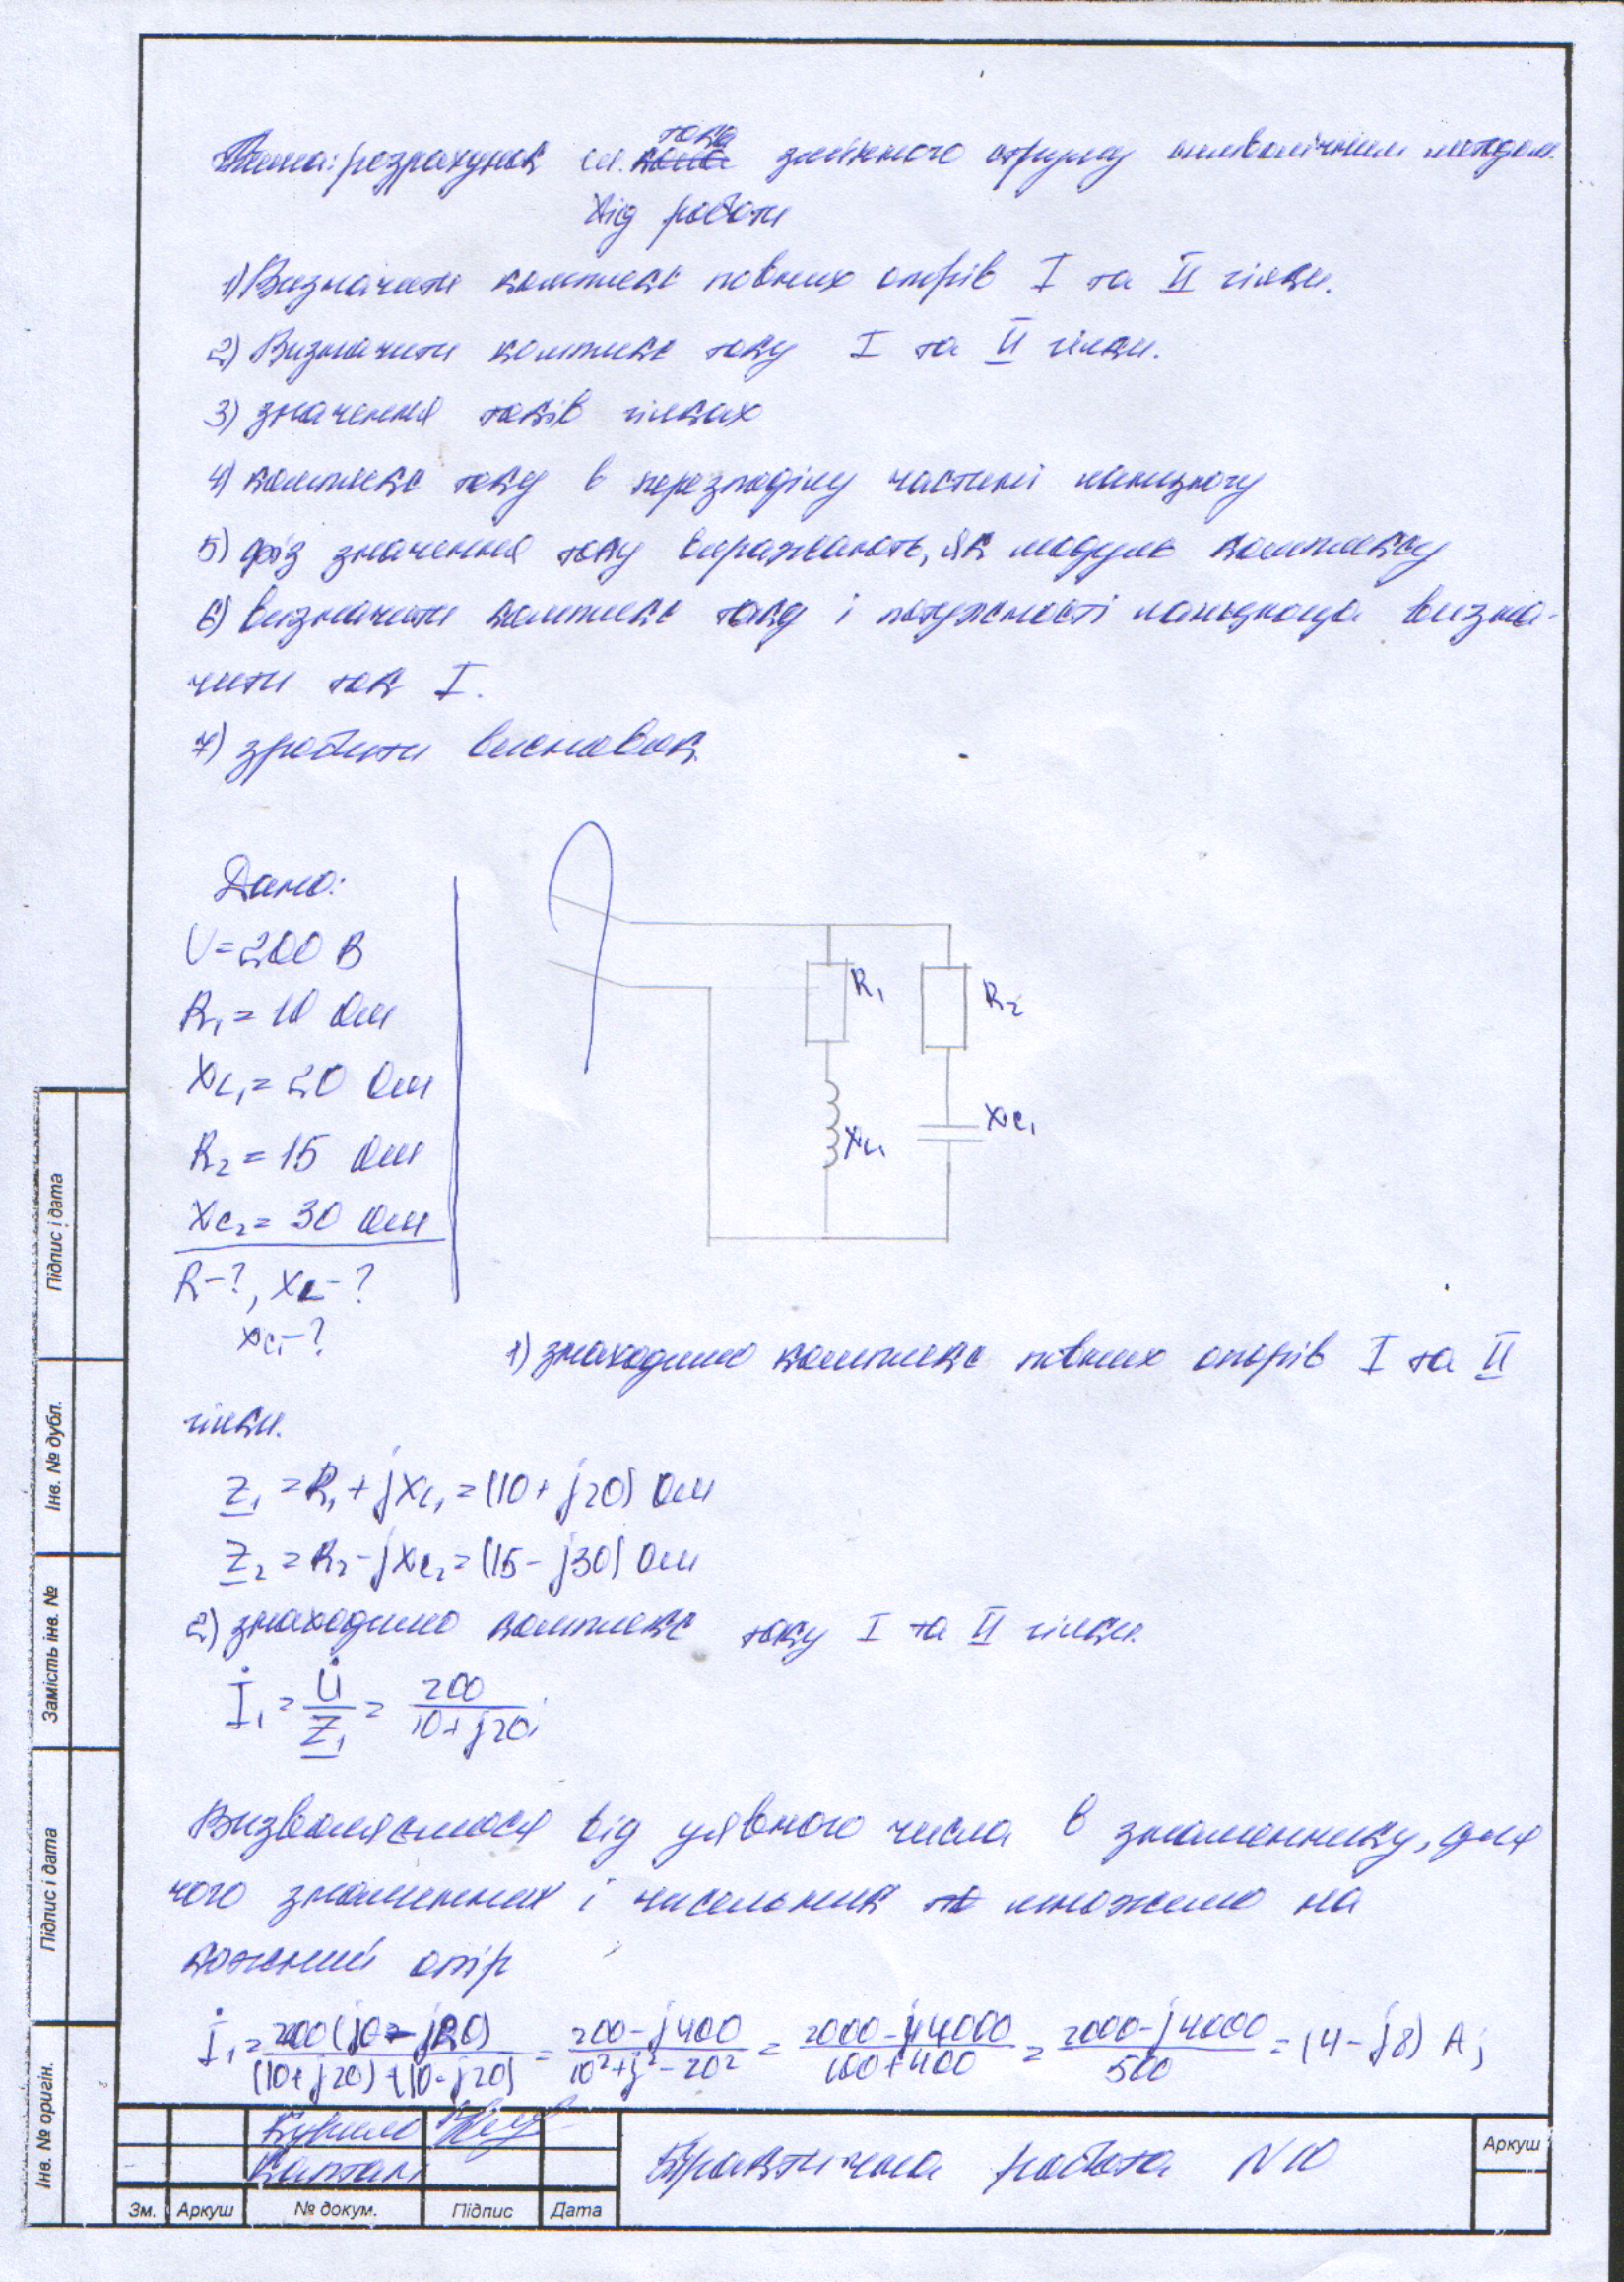 Тема: розрахунок ел. тока змінного струму символічним методом.
Хід роботи
1) Визначити комплекс повних опорів I та II гілки.
2) Визначити комплекс току I та II гілки.
3) значення токів гілках
4) комплекс току в частині
5) значення току виражають, як модуль комплексу
6) визначити комплекс току і потужності визна-
чити ток I.
7) зробити висновок
Дано:
U=200 В
R₁=10 Ом
XL₁=20 Ом
R₂=15 Ом
Xc₂=30 Ом
R-?, XL-?
Xc₁-?
R₁
R₂
XL₁
Xc₁
1) знаходимо комплекс повних опорів I та II
гілки.
Z₁=R₁+jXL₁=(10+j20) Ом
Z₂=R₂-jXc₂=(15-j30) Ом
2) знаходимо комплекс току I та II гілки.
İ₁=U̇/Z₁=200/10+j20;
Визволяємося від уявного числа в знаменнику, для
чого знаменних і чисельник множимо на
кожений опір
İ₁=200(j0-j20)/(10+j20)+(10-j20)=200-j400/10²+j²-20²=2000-j4000/100+400=2000-j4000/500=(4-j8) А;
Практична робота N10
Зм. Аркуш № докум. Підпис Дата
Аркуш
Підпис і дата
Інв. № дубл.
Замість інв. №
Підпис і дата
Інв. № оригін.